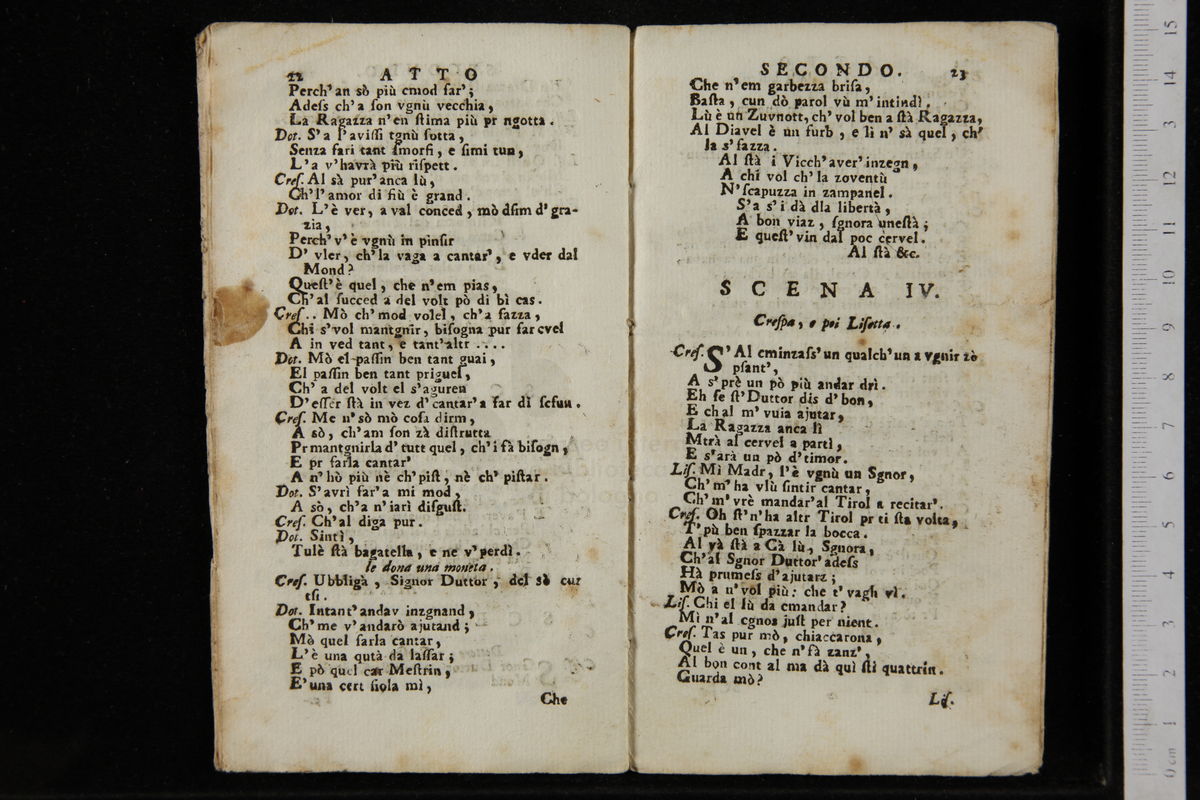 22 ATTO
Perch' an sò più cmod far';
Adeſs ch'a ſon vgnù vecchia,
La Ragazza n'en ſtima più pr ngotta.
Dot. S'a l'aviſſi tgnù ſotta,
Senza fari tant ſmorfi, e ſimi tun,
L'a v'havrà più riſpett.
Creſ. Al sà pur'anca lù,
Ch'l'amor di fiù è grand.
Dot. L'è ver, a val conced, mò dſim d'gra-
zia,
Perch'v'è vgnù in pinſir
D' vler, ch'la vaga a cantar', e vder dal
Mond?
Queſt'è quel, che n'em pias,
Ch'al ſucced a del volt pò di bì cas.
Creſ.. Mò ch'mod volel, ch'a fazza,
Chi s'vol mantgnir, biſogna pur far cvel
A in ved tant, e tant'altr ....
Dot. Mò el paſſin ben tant guai,
El paſſin ben tant priguel,
Ch' a del volt el s'aguren
D'eſſer ſtà in vez d'cantar'a far di ſeſun.
Creſ. Me n'sò mò coſa dirm,
A sò, ch'am ſon zà diſtrutta
Pr mantgnirla d' tutt quel, ch'i fà biſogn,
E pr farla cantar'
A n'hò più nè ch'piſt, nè ch' piſtar.
Dot. S'avrì far'a mi mod,
A sò, ch'a n'iarì diſguſt.
Creſ. Ch'al diga pur.
Dot. Sintì,
Tulè ſtà bagatella, e ne v'perdì.
le dona una moneta.
Creſ. Ubbligà, Signor Duttor, del sò cur
tſi.
Dot. Intant'andav inzgnand,
Ch'me v'andarò ajutand;
Mò quel farla cantar,
L'è una qutà da laſſar;
E pò quel car Meſtrin,
E'una cert ſiola mì,
Che
SECONDO. 23
Che n'em garbezza briſa,
Baſta, cun dò parol vù m'intindì.
Lù è un Zuvnott, ch'vol ben a ſtà Ragazza,
Al Diavel è un furb, e lì n' sà quel, ch'
la s'fazza.
Al ſtà i Vicch'aver'inzegn,
A chi vol ch'la zoventù
N'ſcapuzza in zampanel.
S'a s'i dà dla libertà,
A bon viaz, ſgnora uneſtà;
E queſt'vin dal poc cervel.
Al ſtà &c.
SCENA IV.
Creſpa, e poi Liſetta.
Creſ. S'Al cminzaſs'un qualch'un a vgnir zò
pſant',
A s'prè un pò più andar drì.
Eh ſe ſt'Duttor dis d'bon,
E ch al m' vuia ajutar,
La Ragazza anca lì
Mtrà al cervel a partì,
E s'arà un pò d'timor.
Liſ. Mì Madr, l'è vgnù un Sgnor,
Ch'm'ha vlù ſintir cantar,
Ch'm'vrè mandar'al Tirol a recitar'.
Creſ. Oh ſt'n'ha altr Tirol pr ti ſta volta,
T'pù ben ſpazzar la bocca.
Al và ſtà a Cà lù, Sgnora,
Ch'al Sgnor Duttor'adeſs
Hà prumeſs d'ajutarz;
Mò a n'vol più: che t'vagh vì.
Liſ. Chi el lù da cmandar?
Mì n'al cgnos juſt per nient.
Creſ. Tas pur mò, chiaccarona,
Quel è un, che n'fà zanz',
Al bon cont al ma dà quì ſti quattrin.
Guarda mò?
Liſ.